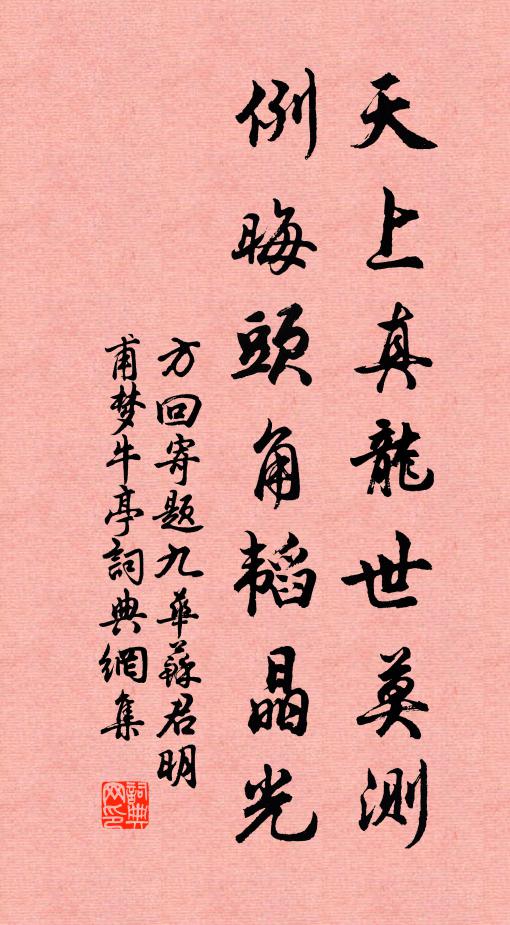 天上真龍世莫測
例晦頭角韬晶光
方回寄题九華蘇君明
甫梦牛亭詞典網集
詞典网印